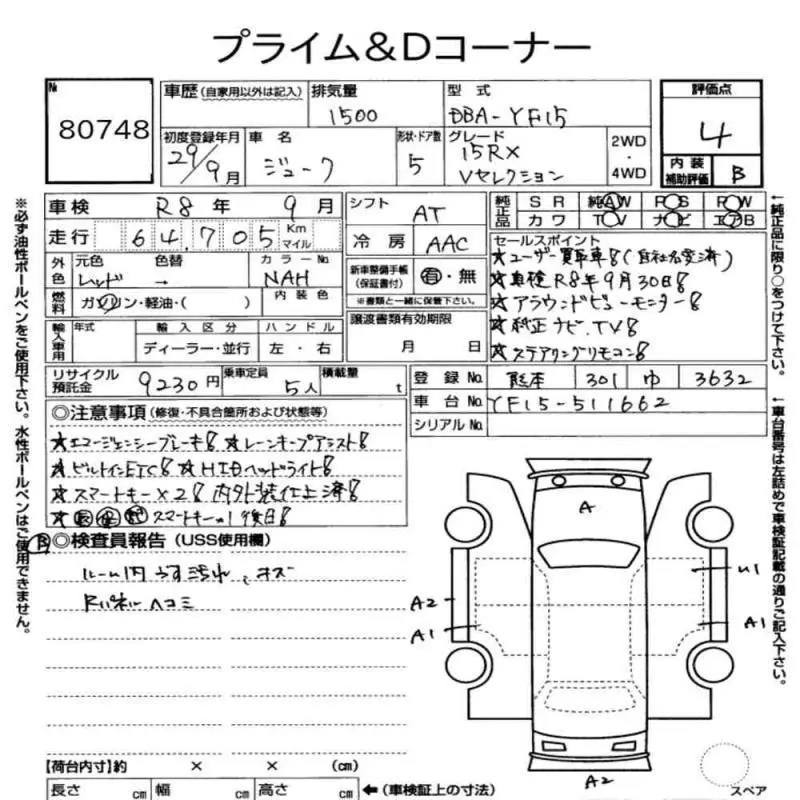 プライム＆Dコーナー
№ 80748
車歴 (自家用以外は記入) 排気量 1500 型式 DBA-YF15 評価点 4
初度登録年月 29/9月 車名 ジューク 形状・ドア数 5 グレード 15RX Vセレクション 2WD・4WD 内装補助評価 B
車検 R8年 9月 シフト AT 純正品 SR 純AW PS PW
走行 64,705 Km マイル 冷房 AAC カワ TV ナビ エアB
外色 元色 レッド 色替 → カラーNo NAH 新車整備手帳 (保証書付) 有・無 セールスポイント
★ユーザー買取車！(自社名変済)
★車検R8年9月30日！
燃料 ガソリン・軽油・( ) 内装色 ※書類と一緒に保管下さい。
★アラウンドビューモニター！
輸入車用 年式 輸入区分 ハンドル 譲渡書類有効期限
★純正ナビ、TV！
ディーラー・並行 左・右 月 日
★ステアリングリモコン！
リサイクル預託金 9230円 乗車定員 5人 積載量 t 登録No. 熊本 301 ゆ 3632
車台No. YF15-511662
シリアルNo.
◎注意事項 (修復・不具合箇所および状態等)
★エマージェンシーブレーキ！★レーンキープアシスト！
★ビルトインETC！★HIDヘッドライト！
★スマートキー×2！内外装仕上済！
スマートキーの1後日！
B ◎検査員報告 (USS使用欄)
ルーム内 うす汚れ、キズ
Rパネル ヘコミ
A
U1
A2
A1
A1
A2
スペア
【荷台内寸】約 × × (cm)
長さ cm 幅 cm 高さ cm ←(車検証上の寸法)
※必ず油性ボールペンをご使用下さい。水性ボールペンはご使用できません。
←純正品に限り○をつけて下さい。
←車台番号は左詰めで車検証記載の通りご記入下さい。